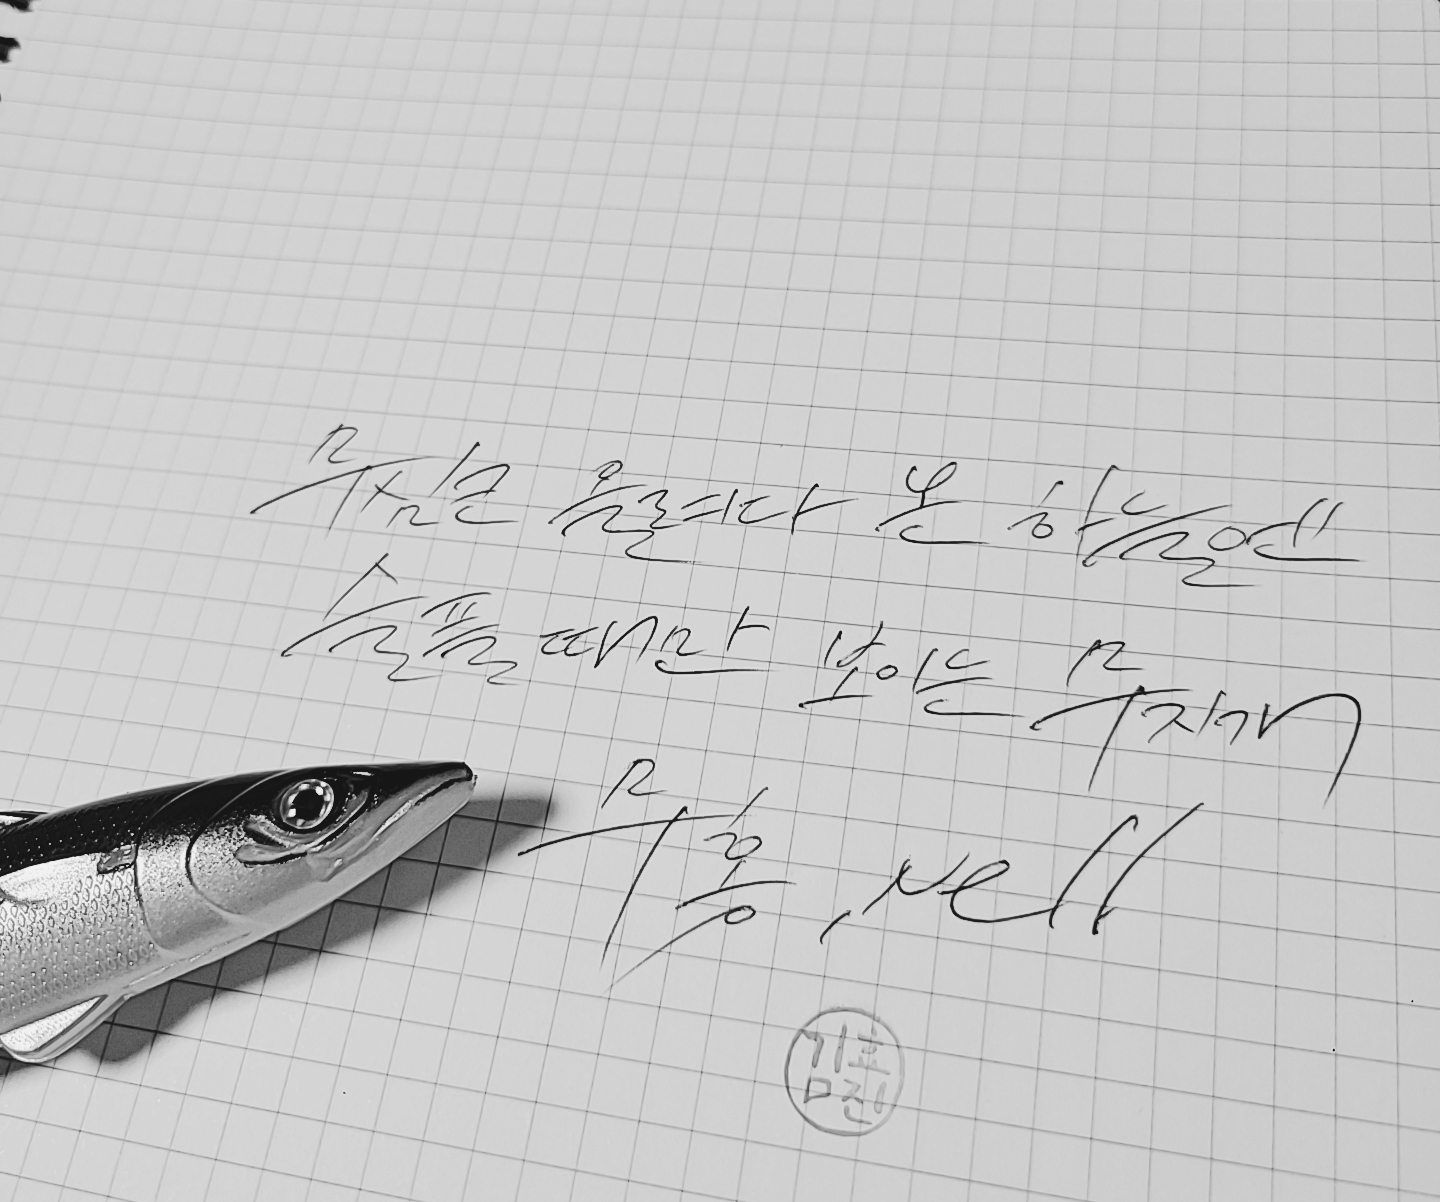 무심코 올려다 본 하늘엔
슬픔때만 보이는 무지개
무흥, yell
김효진